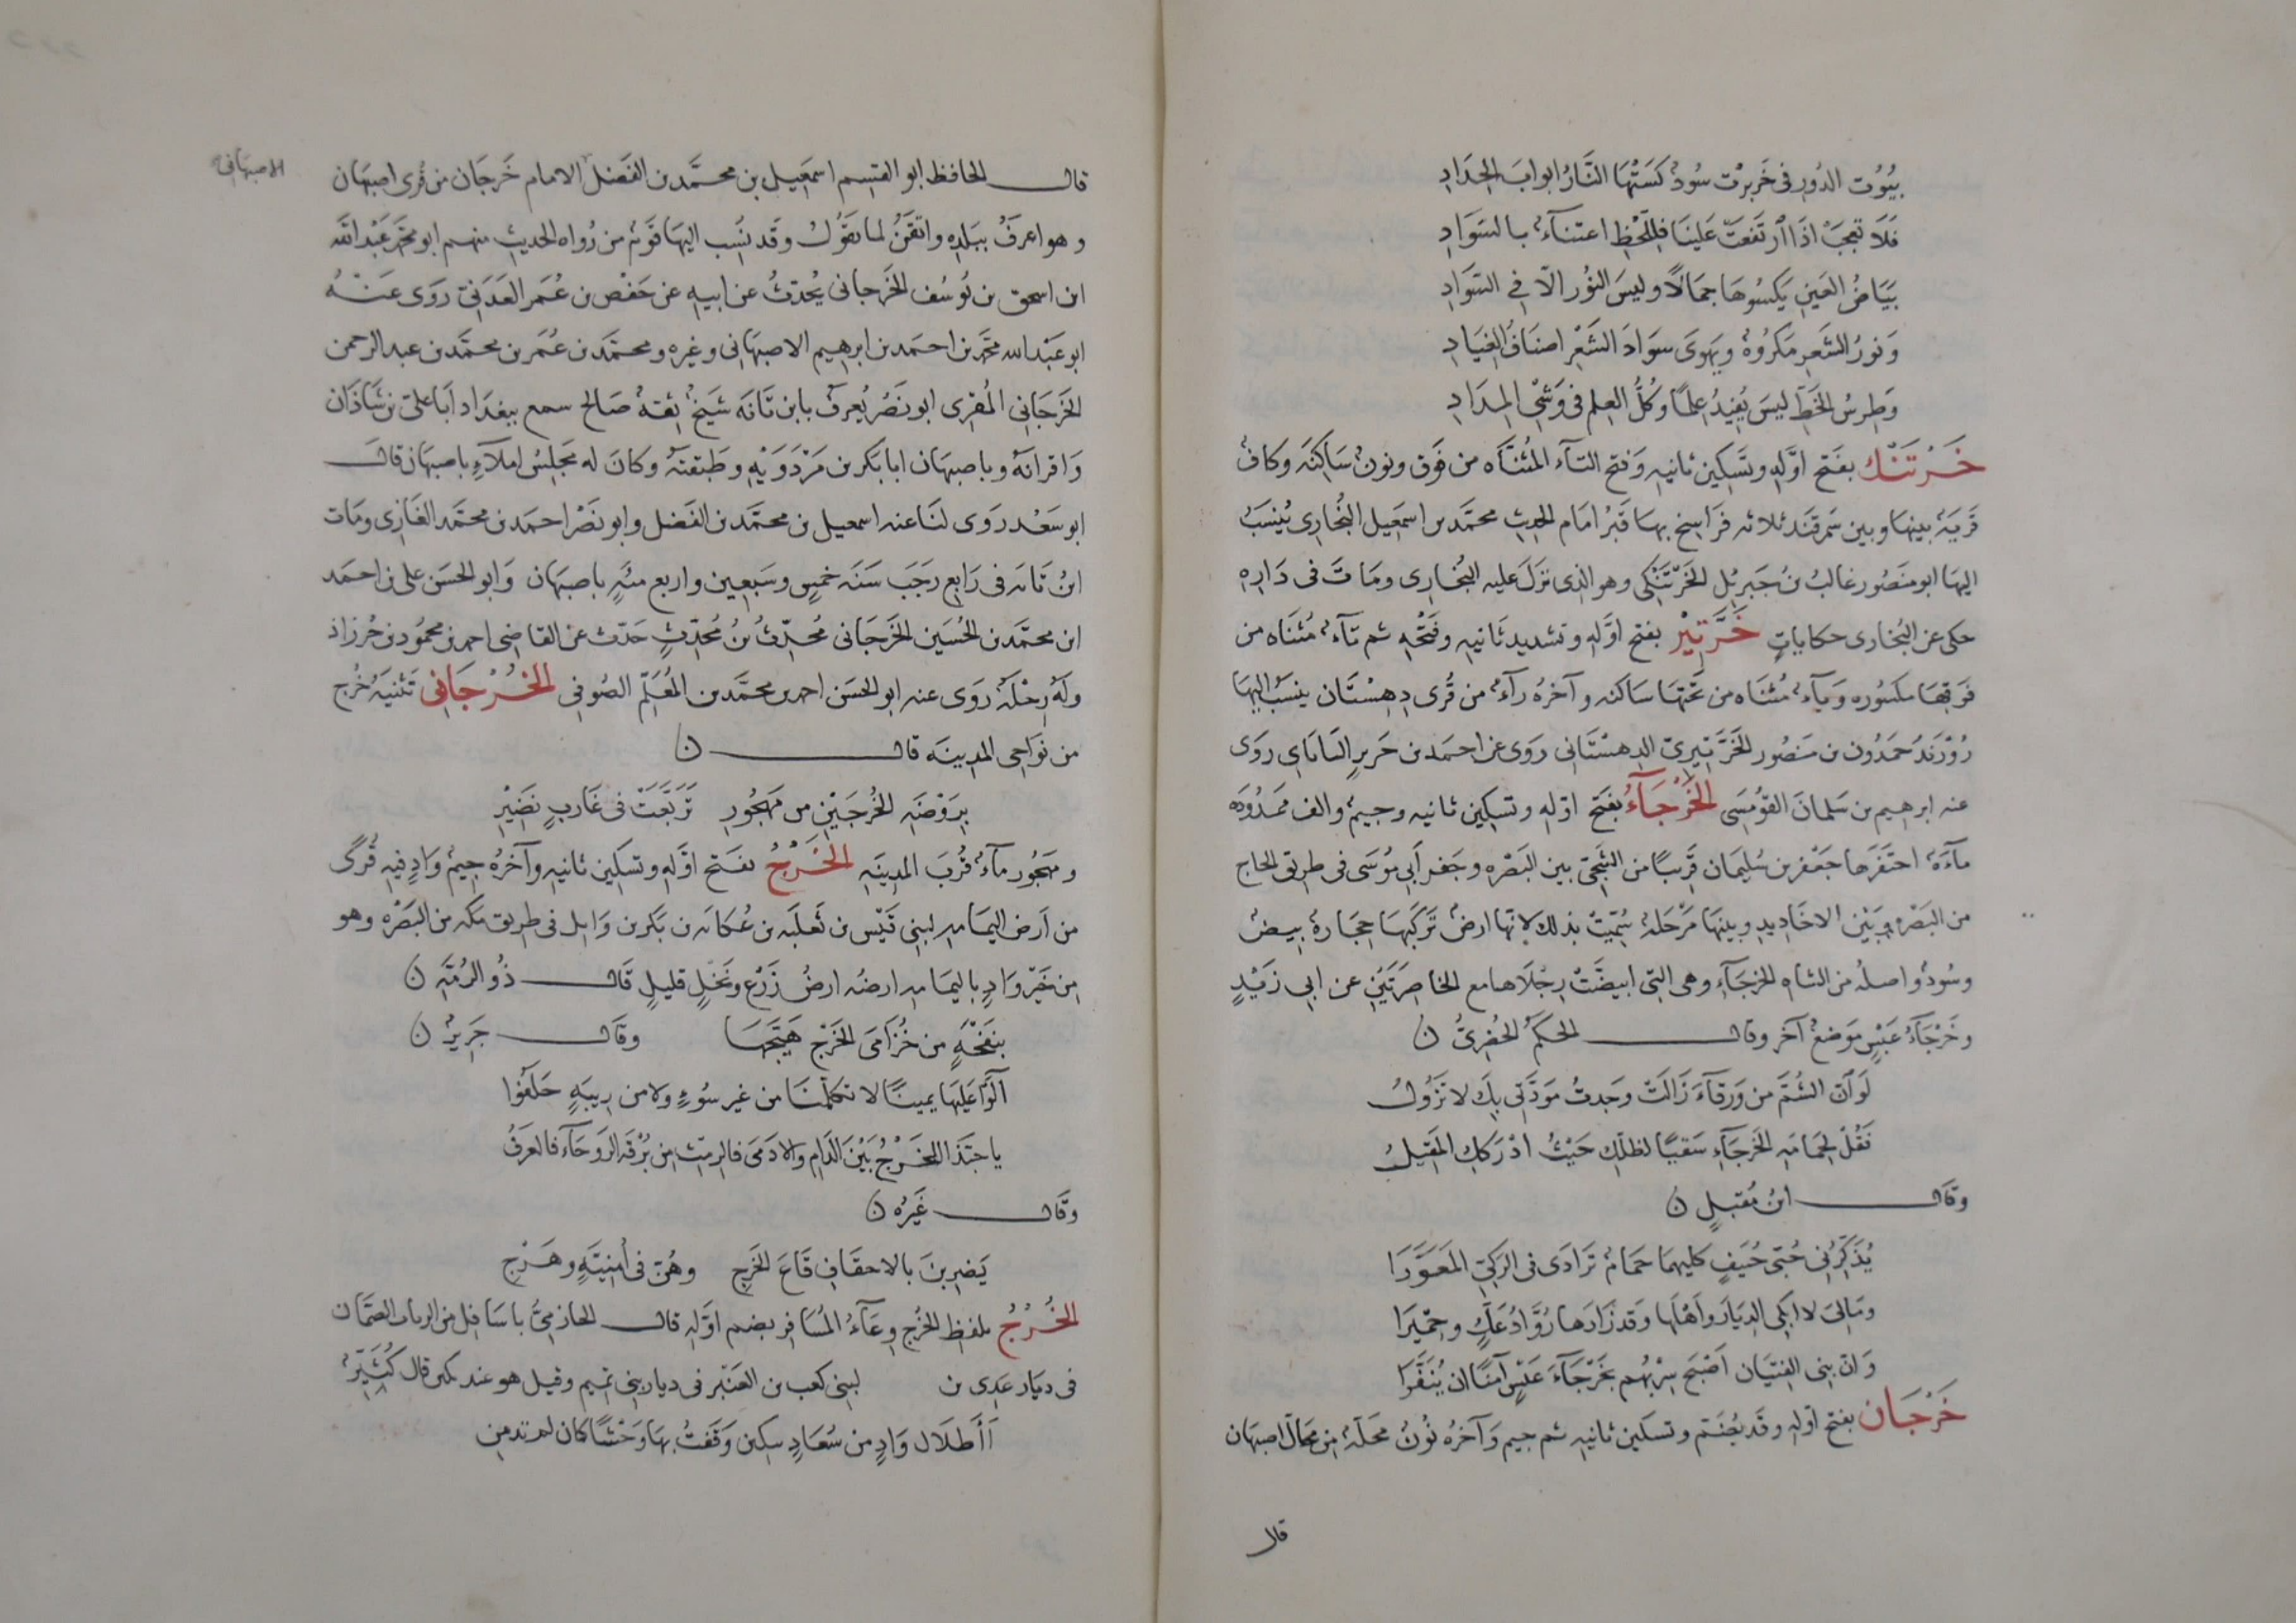 بيُوُت الدُور فى خَربرْت سُودٌ كَسَتْهَا النَّارُ ابوابَ الحِدَادِ
فَلَا تعجبَْ اذَا ارتَفعَتْ عَلينَا فَلِلَّحْظِ اعتنآءٌ بالسَوَادِ
بيَاضُ العَينِ يَكسُوهَا جمَالًا وليسَ النُور الّا فى السَّوَادِ
وَنورُ الشَعرِ مَكروُهٌ ويَهوىَ سوَادَ الشَعْرِ اصنَافُ العِبَادِ
وَطِرسُ الخَطِّ ليسَ يُفِيدُ عِلماً وكُلُّ العِلم فى وَشْىِ المِدَادِ
خَرْتَنْك بفَتح اوَّلِهِ وتسَكين ثانيهِ وَفتحِ التآء المُثنَّاه من فَوق ونونٌ سَاكِنَه وكافٌ
قَريَةٌ بينهَا وبين سَمرقَند ثلاثه فرَاسخ بهَا قَبْرُ امَام الحديثِ محمَّد بن اسمَعِيل البُخارى يُنسَبُ
اليهَا ابو منصُور غالبُ بنُ جبريُل الخَرْتَنْكى وهو الذى نزلَ عليه البُخارى ومَاتَ فى دَارِه
حكى عن البُخارى حكاياتٍ خَرَّتِيْر بفتح اوَّلهِ وتشديد ثَانيهِ وفَتْحِه ثم تآءٌ مُثنَاه من
فوقهَا مكسُوره ويآءٌ مُثنَاه من تحتِهَا سَاكنه وآخرُه رآءٌ من قُرى دِهِسْتَان ينسَبُ اليهَا
حَمدُون بن مَنصُور الخَرَّتيرىّ الدهستَانى روَى عن احمَد بن جَرير البَاباى روَى
عنه ابرهيم بن سَلمانَ القوُمِسَى الخَرْجَآءُ بفَتح اوّلهِ وتسكين ثانيه وجيمٌ والف ممَدُودَه
مآءَةٌ احتَفرَها جَعفر بن سُليمَان قريباً من الشَجِى بين البَصْره وحَفر أَبِى مُوسَى فى طريق الحاج
من البَصْره وبَيْن الاخَاديدِ وبينهَا مَرْحَلةٌ سُمّيَتْ بذلك لانّهَا ارضٌ تَركَبُهَا حِجَارةٌ بيضٌ
وسُودٌ واصلُه من الشاهِ الخرجَآءِ وهى التى ابيضَّتْ رِجلَاهَا مع الخاصِرَتَيْنِ عن ابى زَيْدٍ
وخَرْجَآءُ عَبْسٍ موَضعٌ آخر وقال الحكَمُ الخُضْرِىُّ ن
لَوَ أنّ الشُمَّ من وَرِقَآءَ زَالَتْ وجَدتُ موَدَّتى بِكَ لا تَزُولُ
فَقُلْ لحِمَامَه الخَرجَآءِ سَقياً لظلّكِ حَيْثُ ادْرَككِ المَقِيلُ
وقال ابنُ مُقبلٍ ن
يُذَكِّرُنى حُبَّى حُنَيفٍ كليهمَا حَمَامٌ ترَادَى فى الرَكىِّ المعَوَّرَا
ومَالىَ لا ابكى الديَارَ وَاَهْلَهَا وقد زَارَها رُوَّادُ عَكٍّ وحِمْيَرَا
وَانّ بنى الفِتيَان اَصْبَحَ سِرْبُهُم بخَرْجَآءَ عَبْسٍ آمنًا ان يُنَفَّرَا
خَرْجَان بفتح اوّلهِ وقد يُضَم وتسكين ثانيهِ ثم جيم وآخرُه نُونٌ محَلّةٌ من محَالّ اصبهان
قال
قال الحافظ ابو القسِم اسمَعِيل بن محمَّد بن الفَضل الامام خَرجَان من قُرى اصبهَان
الاصبهانى
وهو اعرفُ ببَلدِه واتقَنُ لما يَقوُلُ وقد نُسِب اليهَا قومٌ من رُواه الحديثِ منهم ابو محمّد عَبْد الله
ابن اسحق بن يُوسُف الخَرجانى يُحدّثُ عن ابيهِ عن حَفْص بن عُمَر العَدَنىّ روَى عنْهُ
ابو عَبْد الله محمّد بن احمَد بن ابرهيم الاصبهَانى وغيره ومحمَّد بن عُمَر بن محمَّد بن عبد الرحمن
الخَرجَانى المُقرِى ابو نَصْر يُعرفُ بابن تَانَه شَيخٌ ثِقةٌ صَالح سمع ببغدَاد اَبَا علىّ بن شاذَان
وَاقرانَهُ وباصبهَان ابا بَكر بن مَرْدَوَيْهِ وطَبقتَهُ وكانَ له مَجلِسُ املآءٍ باصبهَان قال
ابو سَعْد روَى لنَا عنه اسمعيل بن محمَّد بن الفَضل وابو نَصْر احمَد بن محمَّد الغَازى ومَات
ابنُ تَانَه فى رَابع رَجَبَ سَنَه خمسٍ وسَبعين واربع مئهٍ باصبهَان وَابو الحسَن على بن احمَد
ابن محمَّد بن الحُسَين الخَرجَانى مُحدِّثُ بنُ مُحدّثٍ حَدّث عن القاضى احمد بن محمُود بن خُرزاذ
ولَهُ رِحْلَةٌ روَى عنه ابو الحسَن احمد بن محمَّد بن المُعَلّم الصُوفى الخُرْجَانِ تَثنيَةُ خُرج
من نوَاحى المدينَه قال ن
بِرَوْضَه الخُرجَيْنِ من مَهجُورِ تَرَبَّعَتْ فى عَازبٍ نَضِيْرِ
ومَهجُور مآءٌ قُربَ المدينَهِ الخَرْجُ بفَتح اوَّلهِ وتسكين ثانيهِ وآخرُه جيمٌ وَادٍ فيهِ قُرًى
من اَرض اليمَامه لبنى قَيْس بن ثَعلبَه بن عُكابَه بن بَكر بن وَايل فى طريق مكه من البَصْره وهو
من خَيْر وَادٍ باليمَامه ارضُه ارضُ زَرْع ونَخْلٍ قليلٍ قَال ذُو الرُمَّهِ ن
بنَفْحَهٍ من خُزَامَى الخَرْجِ هَيَّجَهَا وقَال جَريرٌ ن
آلَوْا عَليهَا يميناً لا تكلّمنَا من غير سُوءٍ ولا من رِيبَهٍ حَلَفُوا
يا حبّذَا الخَرْجُ بَيْنَ الدَامِ والادَمَى فالرِمْث من بُرْقَه الرَوحَآء فالغرَفُ
وقَال غَيْرُه ن
يَضرِبنَ بالاحقَافِ قَاعَ الخَرجِ وهُنّ فى اُمْنِيَّهٍ وهَرْجِ
الخُرْجُ بلفظِ الخُرج وِعَآءُ المُسَافرِ بضم اوَّلهِ قال الحازمىُّ
فى ديَار عَدِى بن لبنى كعب بن العَنْبَر فى ديار بنى تميم وقيل هو عند قال كُثَيّرٌ
أأَطلَال وَادٍ من سُعَادٍ وَقَفتُ بهَا وَحْشًا كان لم تدمن